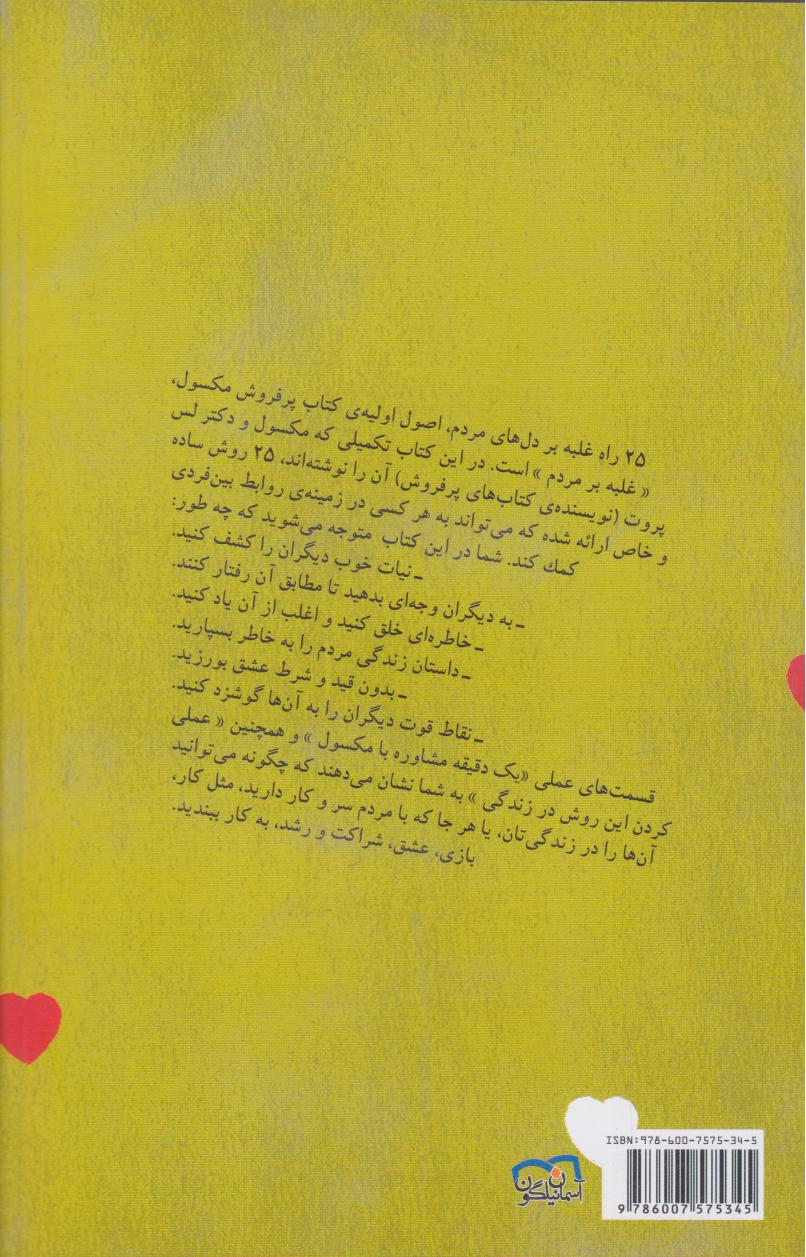 ۲۵ راهِ غلبه بر دل‌های مردم، اصول اولیه‌ی کتاب پرفروش مکسول،
« غلبه بر مردم » است. در این کتاب تکمیلی که مکسول و دکتر لس
پروت (نویسنده‌ی کتاب‌های پرفروش) آن را نوشته‌اند، ۲۵ روش ساده
و خاص ارائه شده که می‌تواند به هر کسی در زمینه‌ی روابط بین‌فردی
کمك کند. شما در این کتاب متوجه می‌شوید که چه طور:
ـ نیات خوب دیگران را کشف کنید.
ـ به دیگران وجه‌ای بدهید تا مطابق آن رفتار کنند.
ـ خاطره‌ای خلق کنید و اغلب از آن یاد کنید.
ـ داستان زندگی مردم را به خاطر بسپارید.
ـ بدون قید و شرط عشق بورزید.
ـ نقاط قوت دیگران را به آن‌ها گوشزد کنید.
قسمت‌های عملی «یک دقیقه مشاوره با مکسول » و همچنین « عملی
کردن این روش در زندگی » به شما نشان می‌دهند که چگونه می‌توانید
آن‌ها را در زندگی‌تان، یا هر جا که با مردم سر و کار دارید، مثل کار،
بازی، عشق، شراکت و رشد، به کار ببندید.
آسمان نیلگون
ISBN:978-600-7575-34-5
9 786007 575345